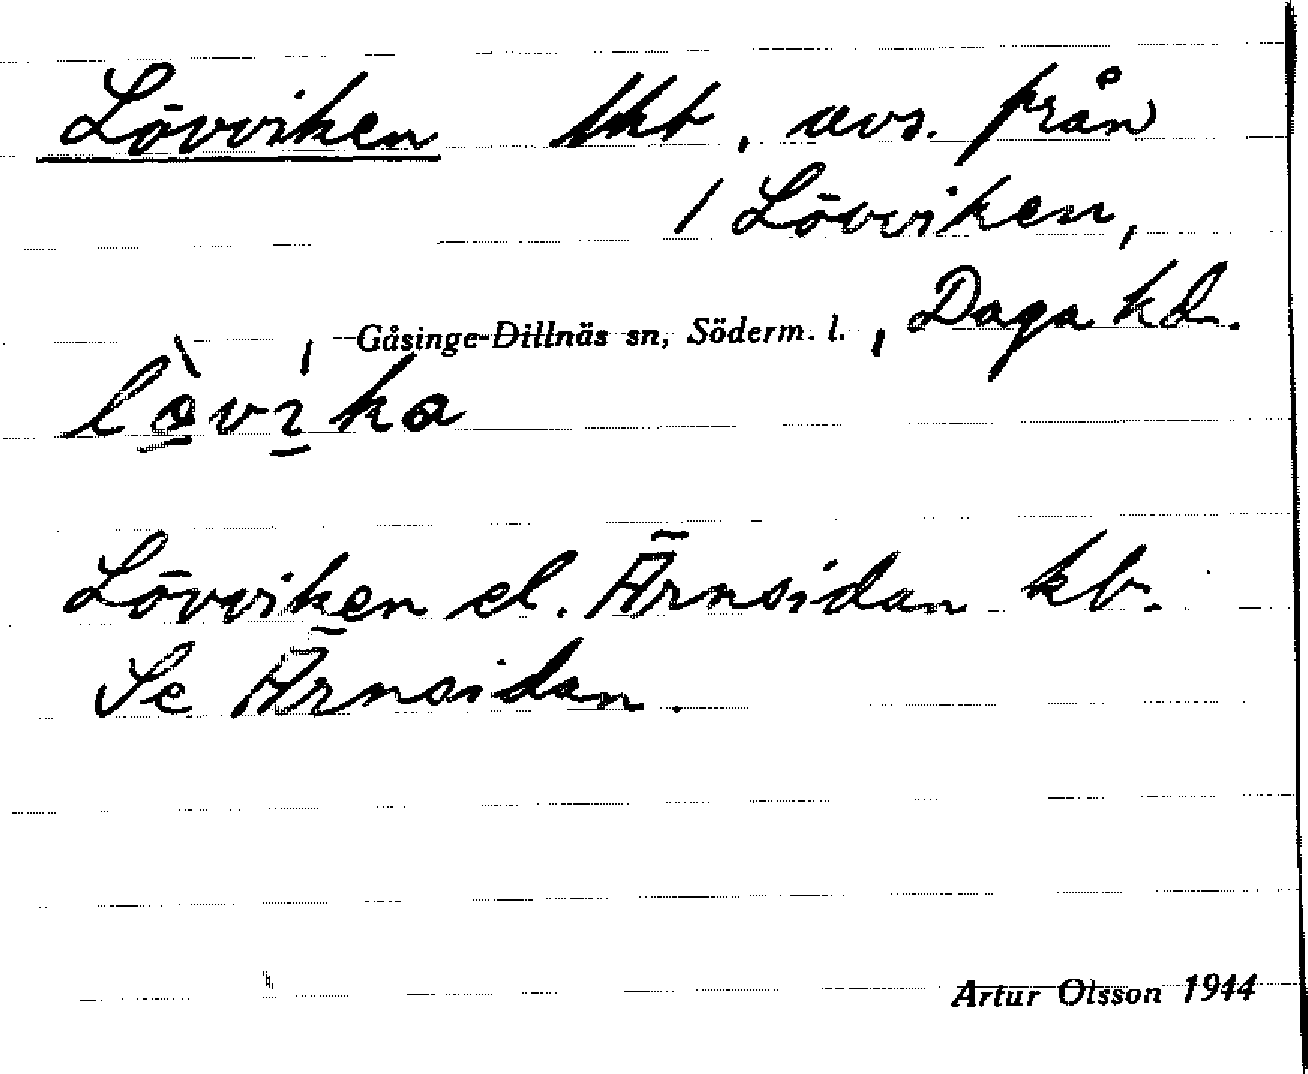 Lövviken lht, avs. från
1 Lövviken,
Gåsinge-Dillnäs sn, Söderm. l., Daga hd.
Lövviken el. Ärnsidan kb.
Se Ärnsidan.
Artur Olsson 1944